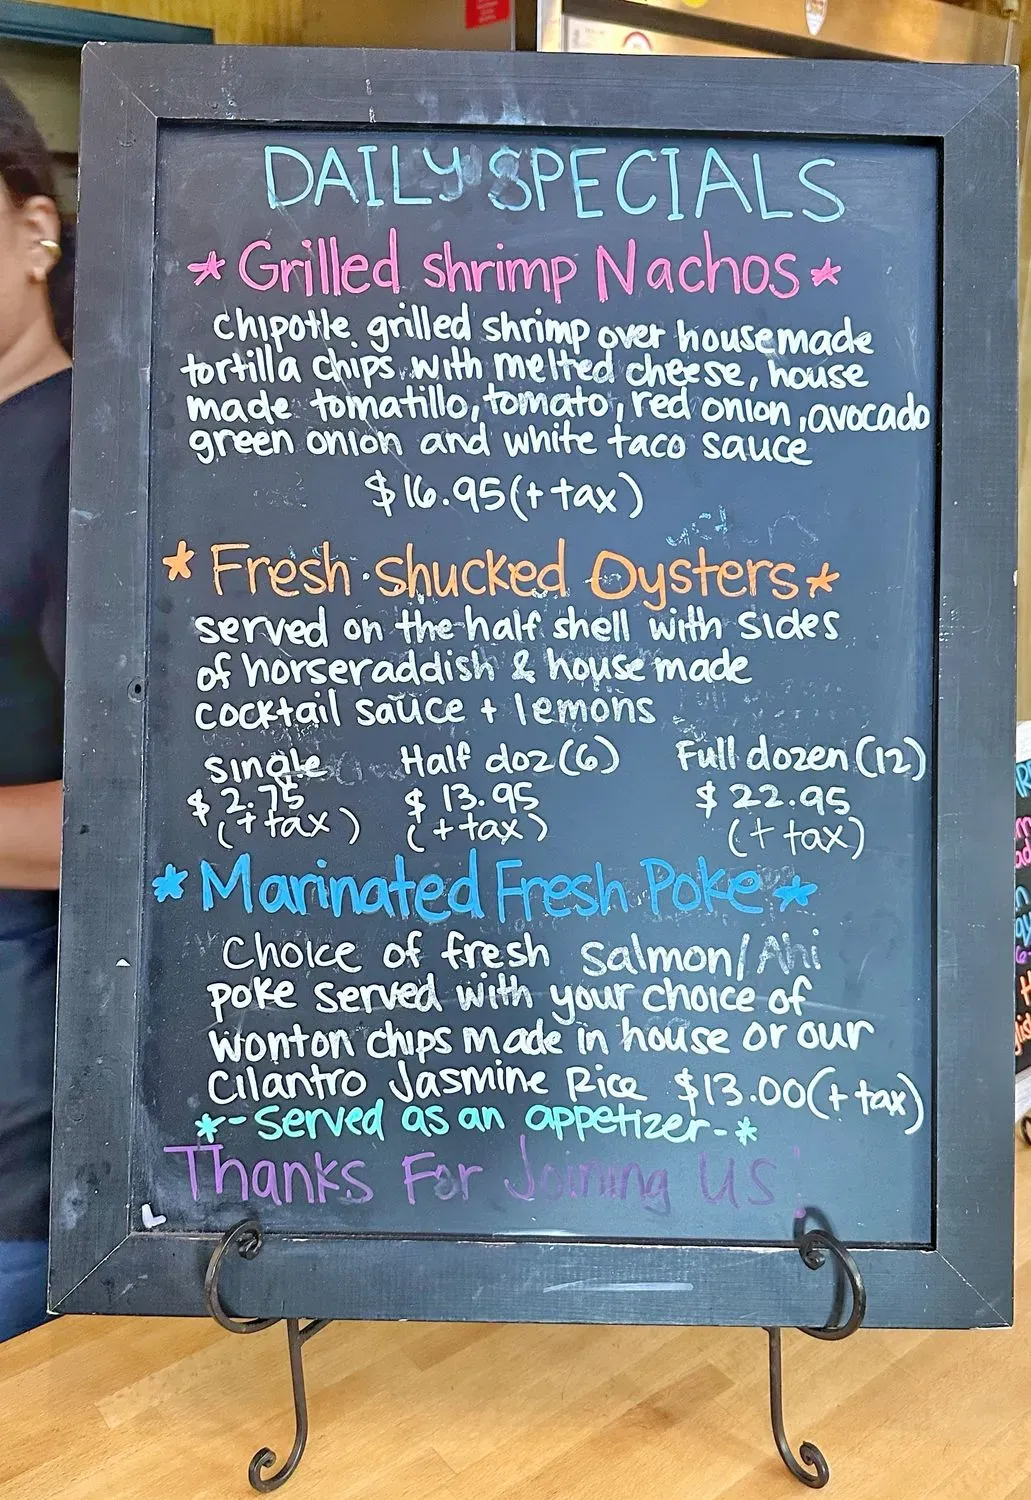 DAILY SPECIALS
* Grilled shrimp Nachos *
Chipotle grilled shrimp over housemade
tortilla chips with melted cheese, house
made tomatillo, tomato, red onion, avocado
green onion and white taco sauce
$16.95(+tax)
* Fresh shucked Oysters *
served on the half shell with sides
of horseraddish & house made
cocktail sauce + lemons
single Half doz (6) Full dozen (12)
$2.75 $13.95 $22.95
(+tax) (+tax) (+tax)
* Marinated Fresh Poke *
Choice of fresh Salmon/Ahi
poke served with your choice of
wonton chips made in house or our
Cilantro Jasmine Rice $13.00(+tax)
*-Served as an appetizer-*
Thanks For Joining Us!